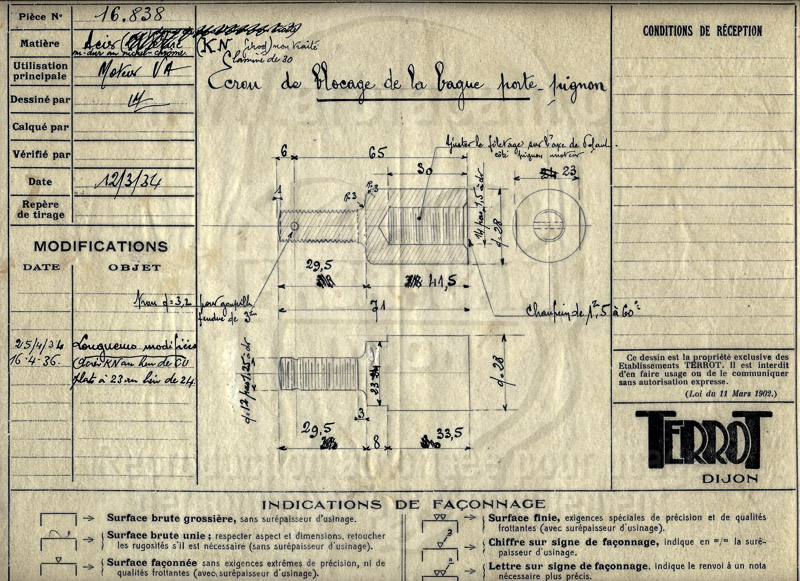 Pièce N° 16.838
Matière Acier KN non traité
m. dur au nickel-chrome.
Étamine de 30
Utilisation principale Moteur VA
Dessiné par
Calqué par
Vérifié par
Date 12/3/34
Repère de tirage
Ecrou de blocage de la bague porte-pignon
CONDITIONS DE RÉCEPTION
MODIFICATIONS
DATE OBJET
25/4/34 Longueurs modifiées
16-4-36. Acier KN au lieu de
plats à 23 au lieu de 24
Ajuster le filetage sur l'axe de
côté pignon moteur
6
65
30
23
1
R.3
14 pas 1,5 à dr
d=28
29,5
41,5
71
Trou d=3,2 pour goupille
fendue de 3
Chanfrein de 1,5 à 60°
d=12 pas 1,25 à dr
23
d=28
3
29,5
8
33,5
Ce dessin est la propriété exclusive des
Etablissements TERROT. Il est interdit
d'en faire usage ou de le communiquer
sans autorisation expresse.
(Loi du 11 Mars 1902.)
TERROT
DIJON
INDICATIONS DE FAÇONNAGE
Surface brute grossière, sans surépaisseur d'usinage.
Surface brute unie; respecter aspect et dimensions, retoucher
les rugosités s'il est nécessaire (sans surépaisseur d'usinage).
Surface façonnée sans exigences extrêmes de précision, ni de
qualités frottantes (avec surépaisseur d'usinage).
Surface finie, exigences spéciales de précision et de qualités
frottantes (avec surépaisseur d'usinage).
Chiffre sur signe de façonnage, indique en m/m la surépaisseur d'usinage.
Lettre sur signe de façonnage, indique le renvoi à un nota
nécessaire plus précis.